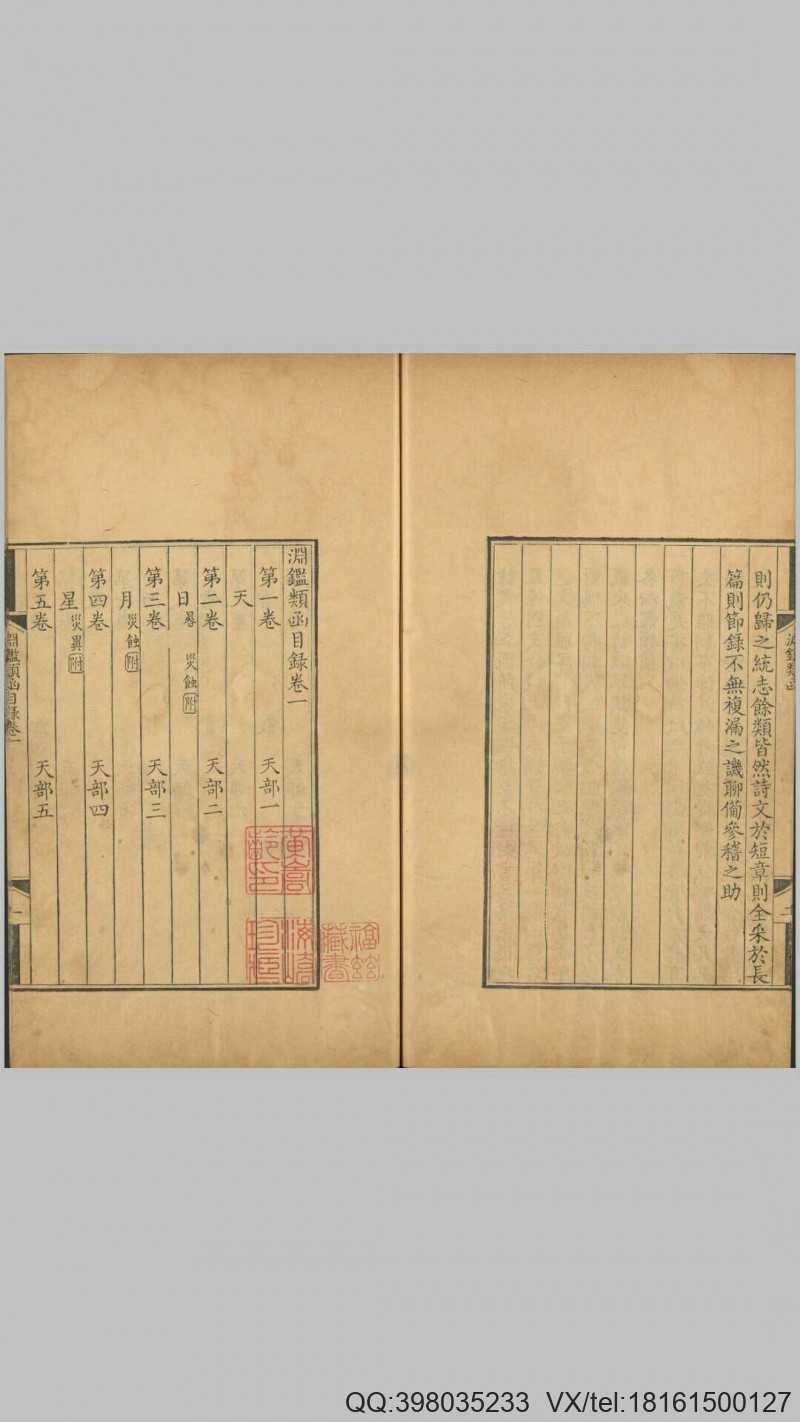 則仍歸之統志餘類皆然詩文於短章則全采於長
篇則節錄不無複漏之譏聊備參稽之助
淵鑑類函
二
淵鑑類函目録卷一
第一卷 天部一
天
第二卷 天部二
日 晷 災蝕附
第三卷 天部三
月 災蝕附
第四卷 天部四
星 災異附
第五卷 天部五
淵鑑類函目録卷一
一
藏書
珍藏
QQ:398035233 VX/tel:18161500127